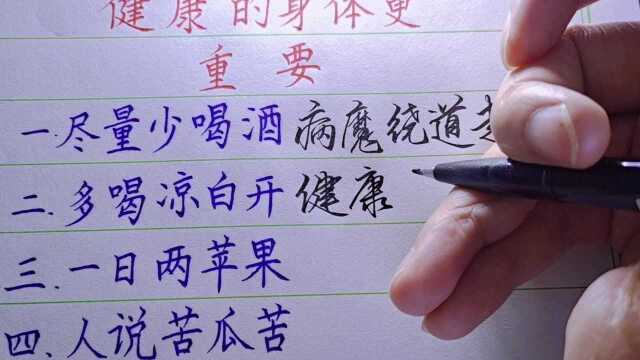 健康的身体更
重要
一.尽量少喝酒 病魔绕道
二.多喝凉白开 健康
三.一日两苹果
四.人说苦瓜苦